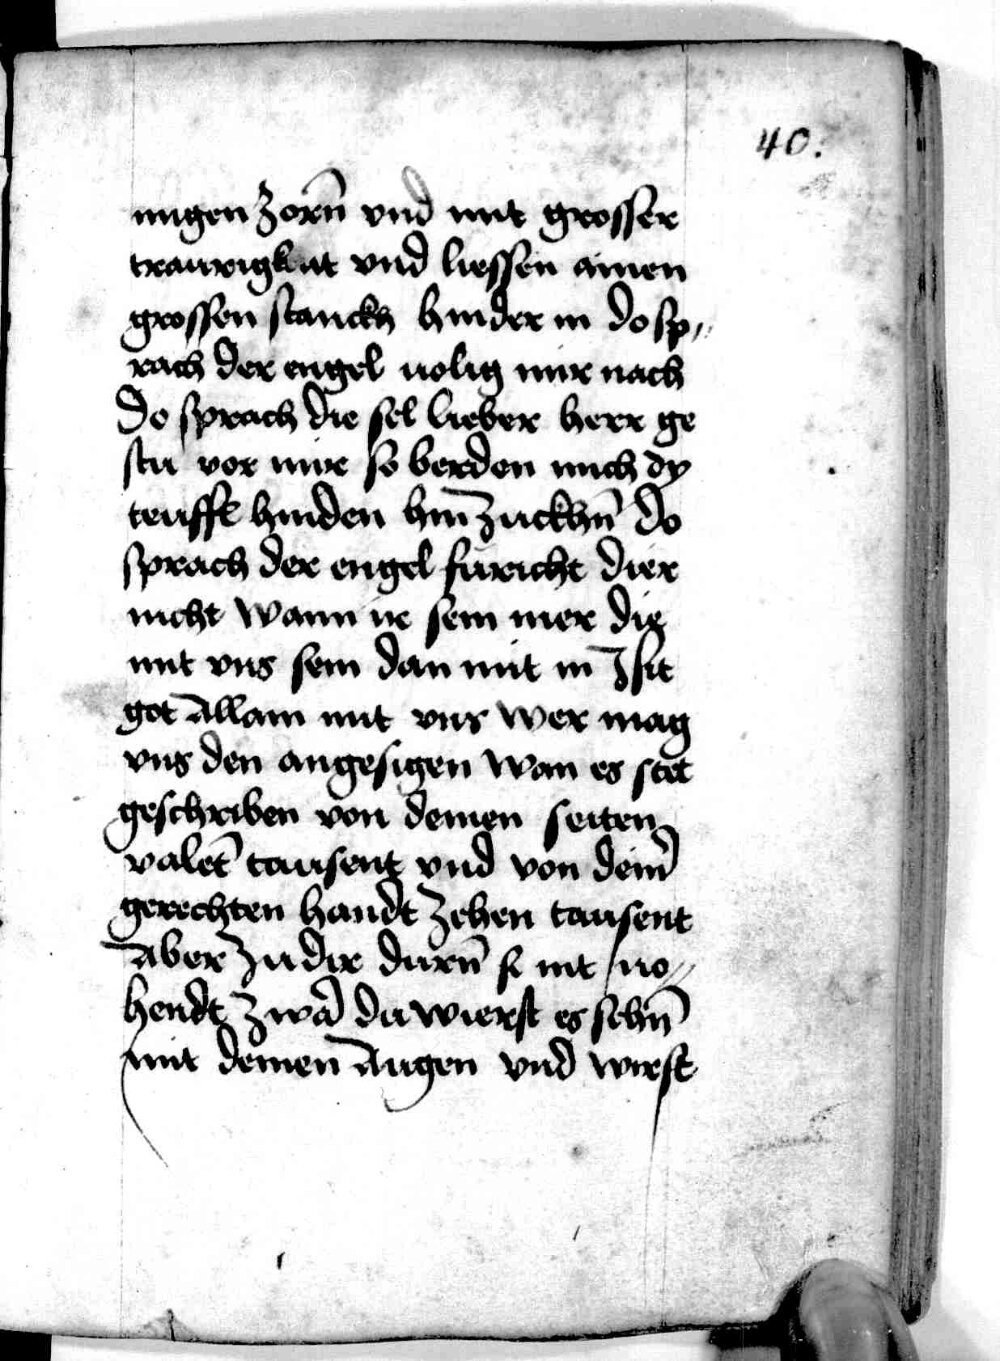 40.
nigen zorñ vnd mit grosser
traurigkait vnd liessen ainen
grossen stanckh hinder in do sp„
rach der engel uolig mir nach
Do sprach die sel lieber herr ge
stu vor mir so berden mich dy
teuffl hinden hin zuckhñ Do
sprach der engel fuericht dier
nicht Wann ir sein mer die
mit vns sein dan mit in Ist
got Allain mit vns Wer mag
vns den angesigen Wan es stet
geschriben von deinen seiten
valet̄ tausent vnd von deiñ
gerechten handt zehen tausent
Aber zu dir durñ si nit no„
hendt zwar du wierst es sehñ
mit deinen Augen vnd wirst